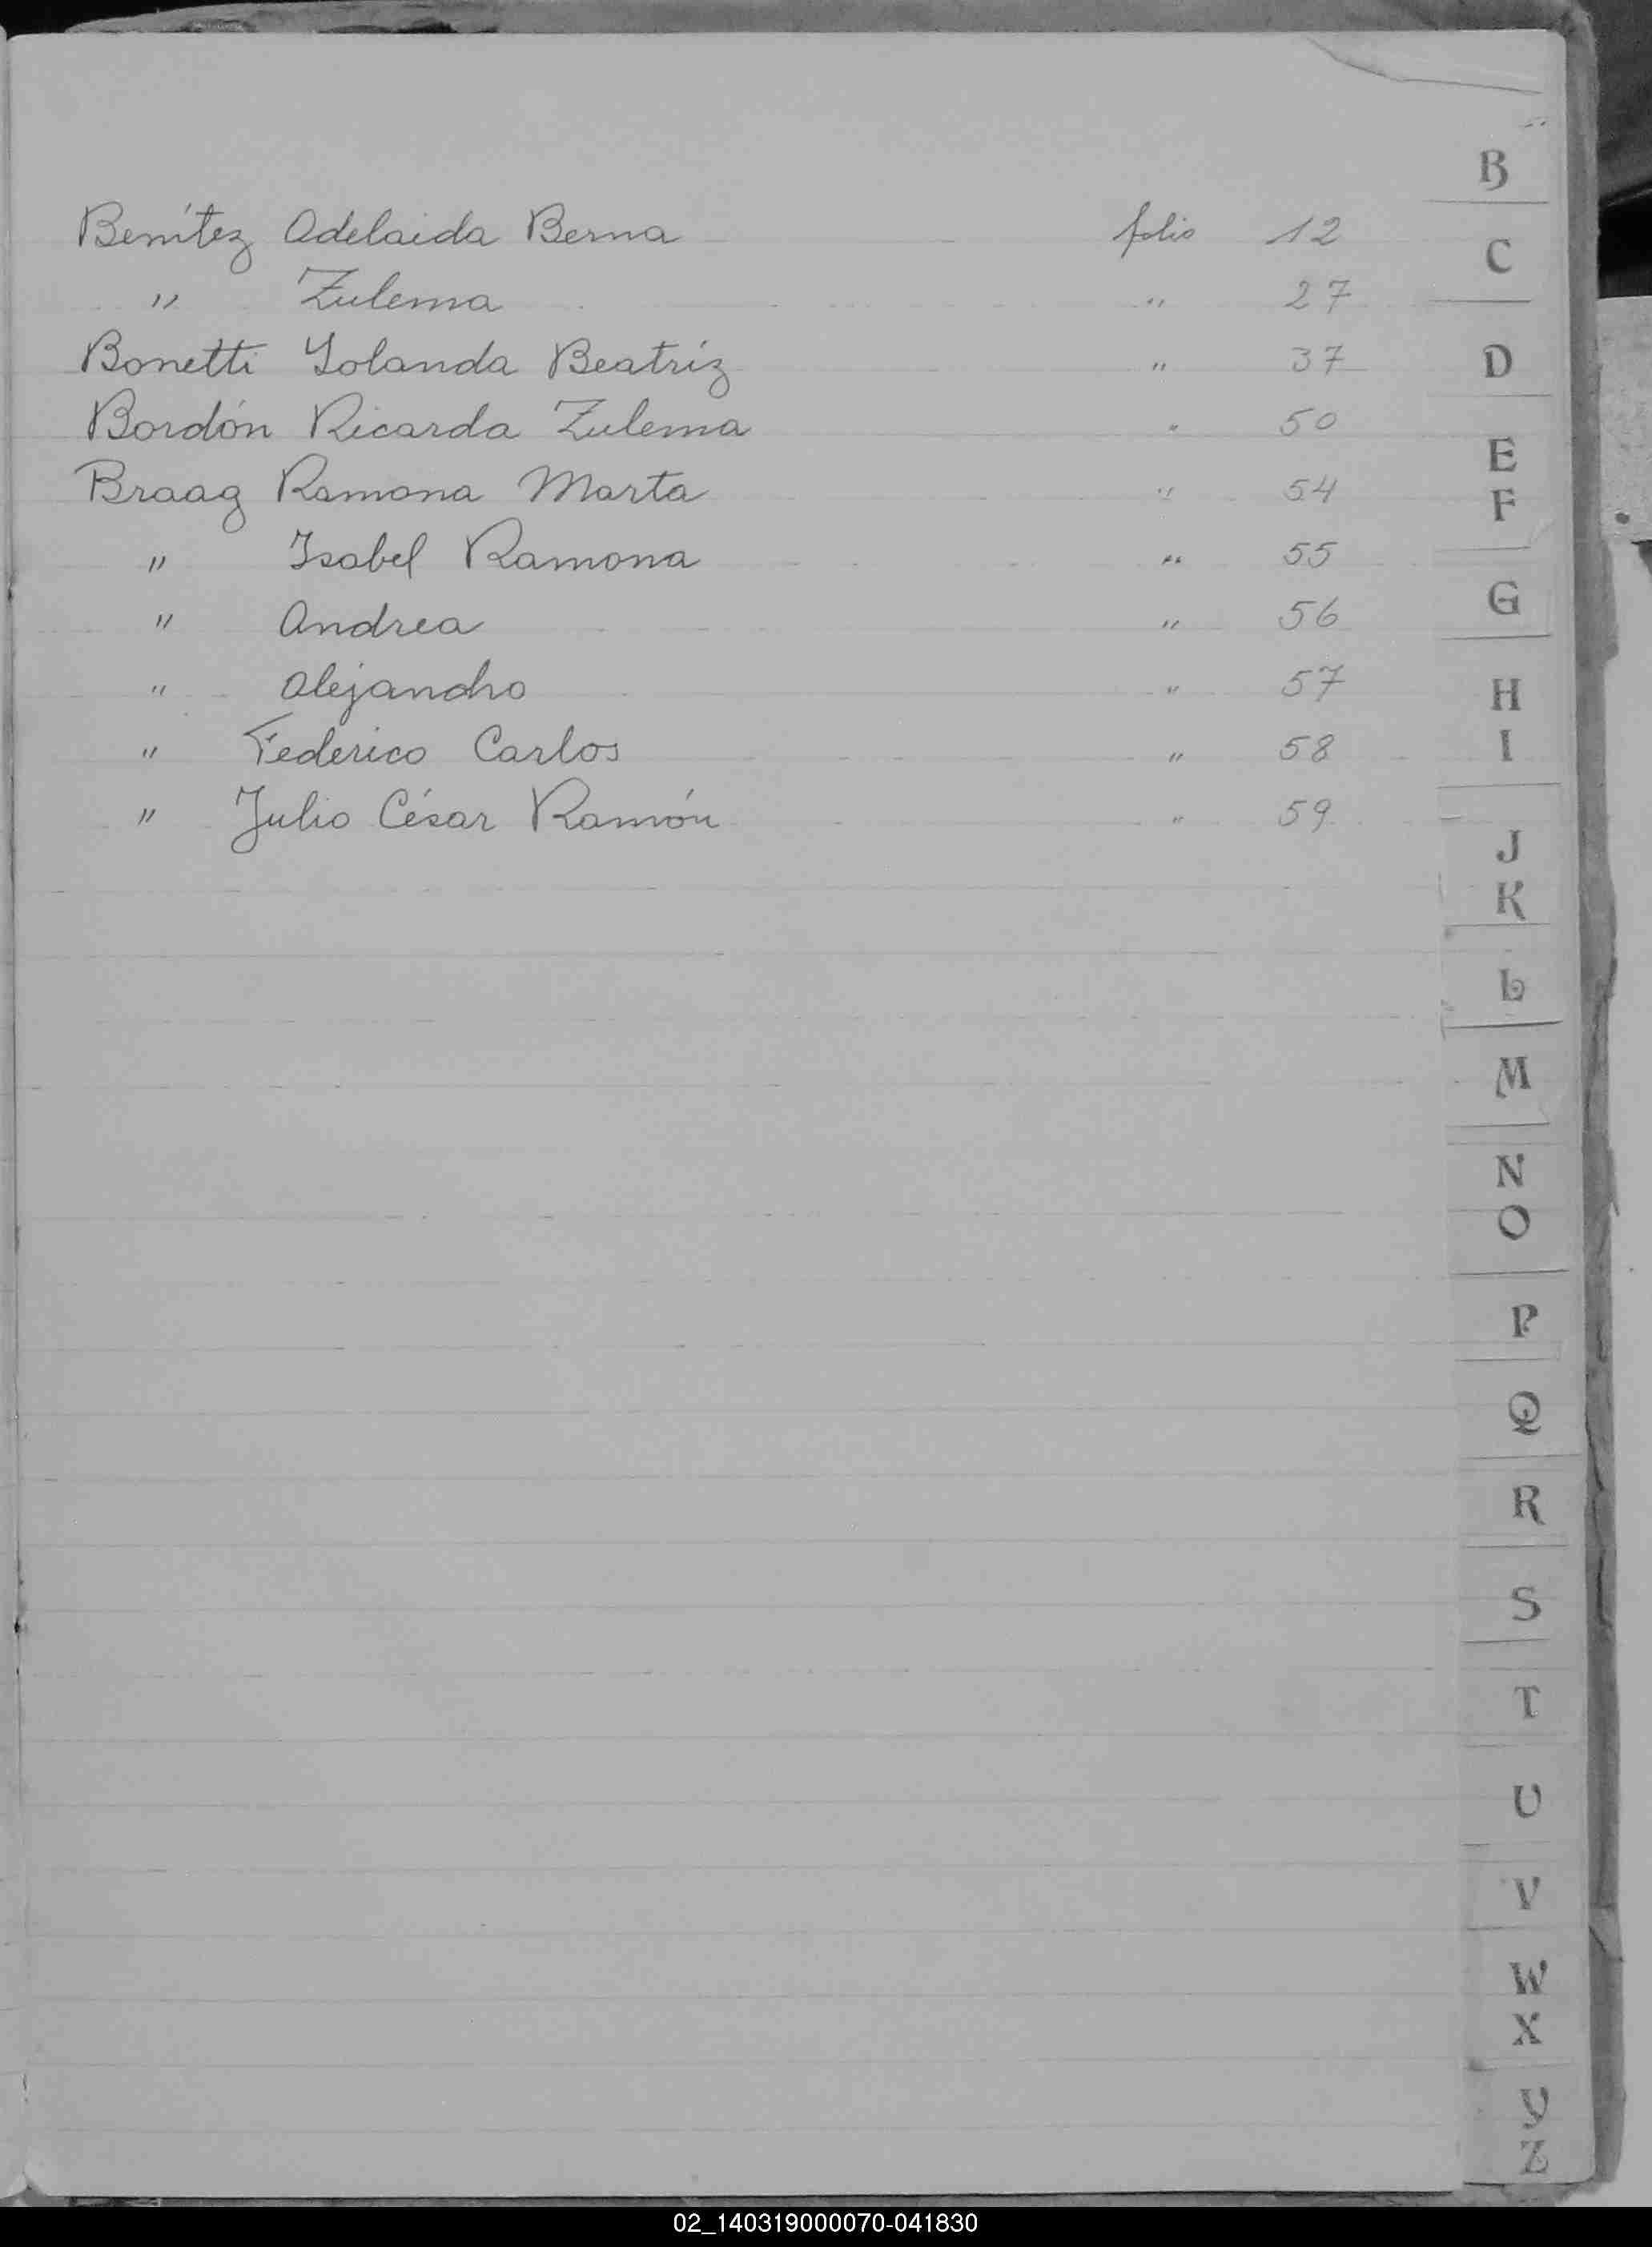 Benítez Adelaida Berna folio 12
" Zulema " 27
Bonetti Yolanda Beatríz " 37
Bordón Ricarda Zulema " 50
Braag Ramona Marta " 54
" Isabel Ramona " 55
" Andrea " 56
" Alejandro " 57
" Federico Carlos " 58
" Julio César Ramón " 59
B
C
D
E
F
G
H
I
J
K
L
M
N
O
P
Q
R
S
T
U
V
W
X
Y
Z
02_140319000070-041830